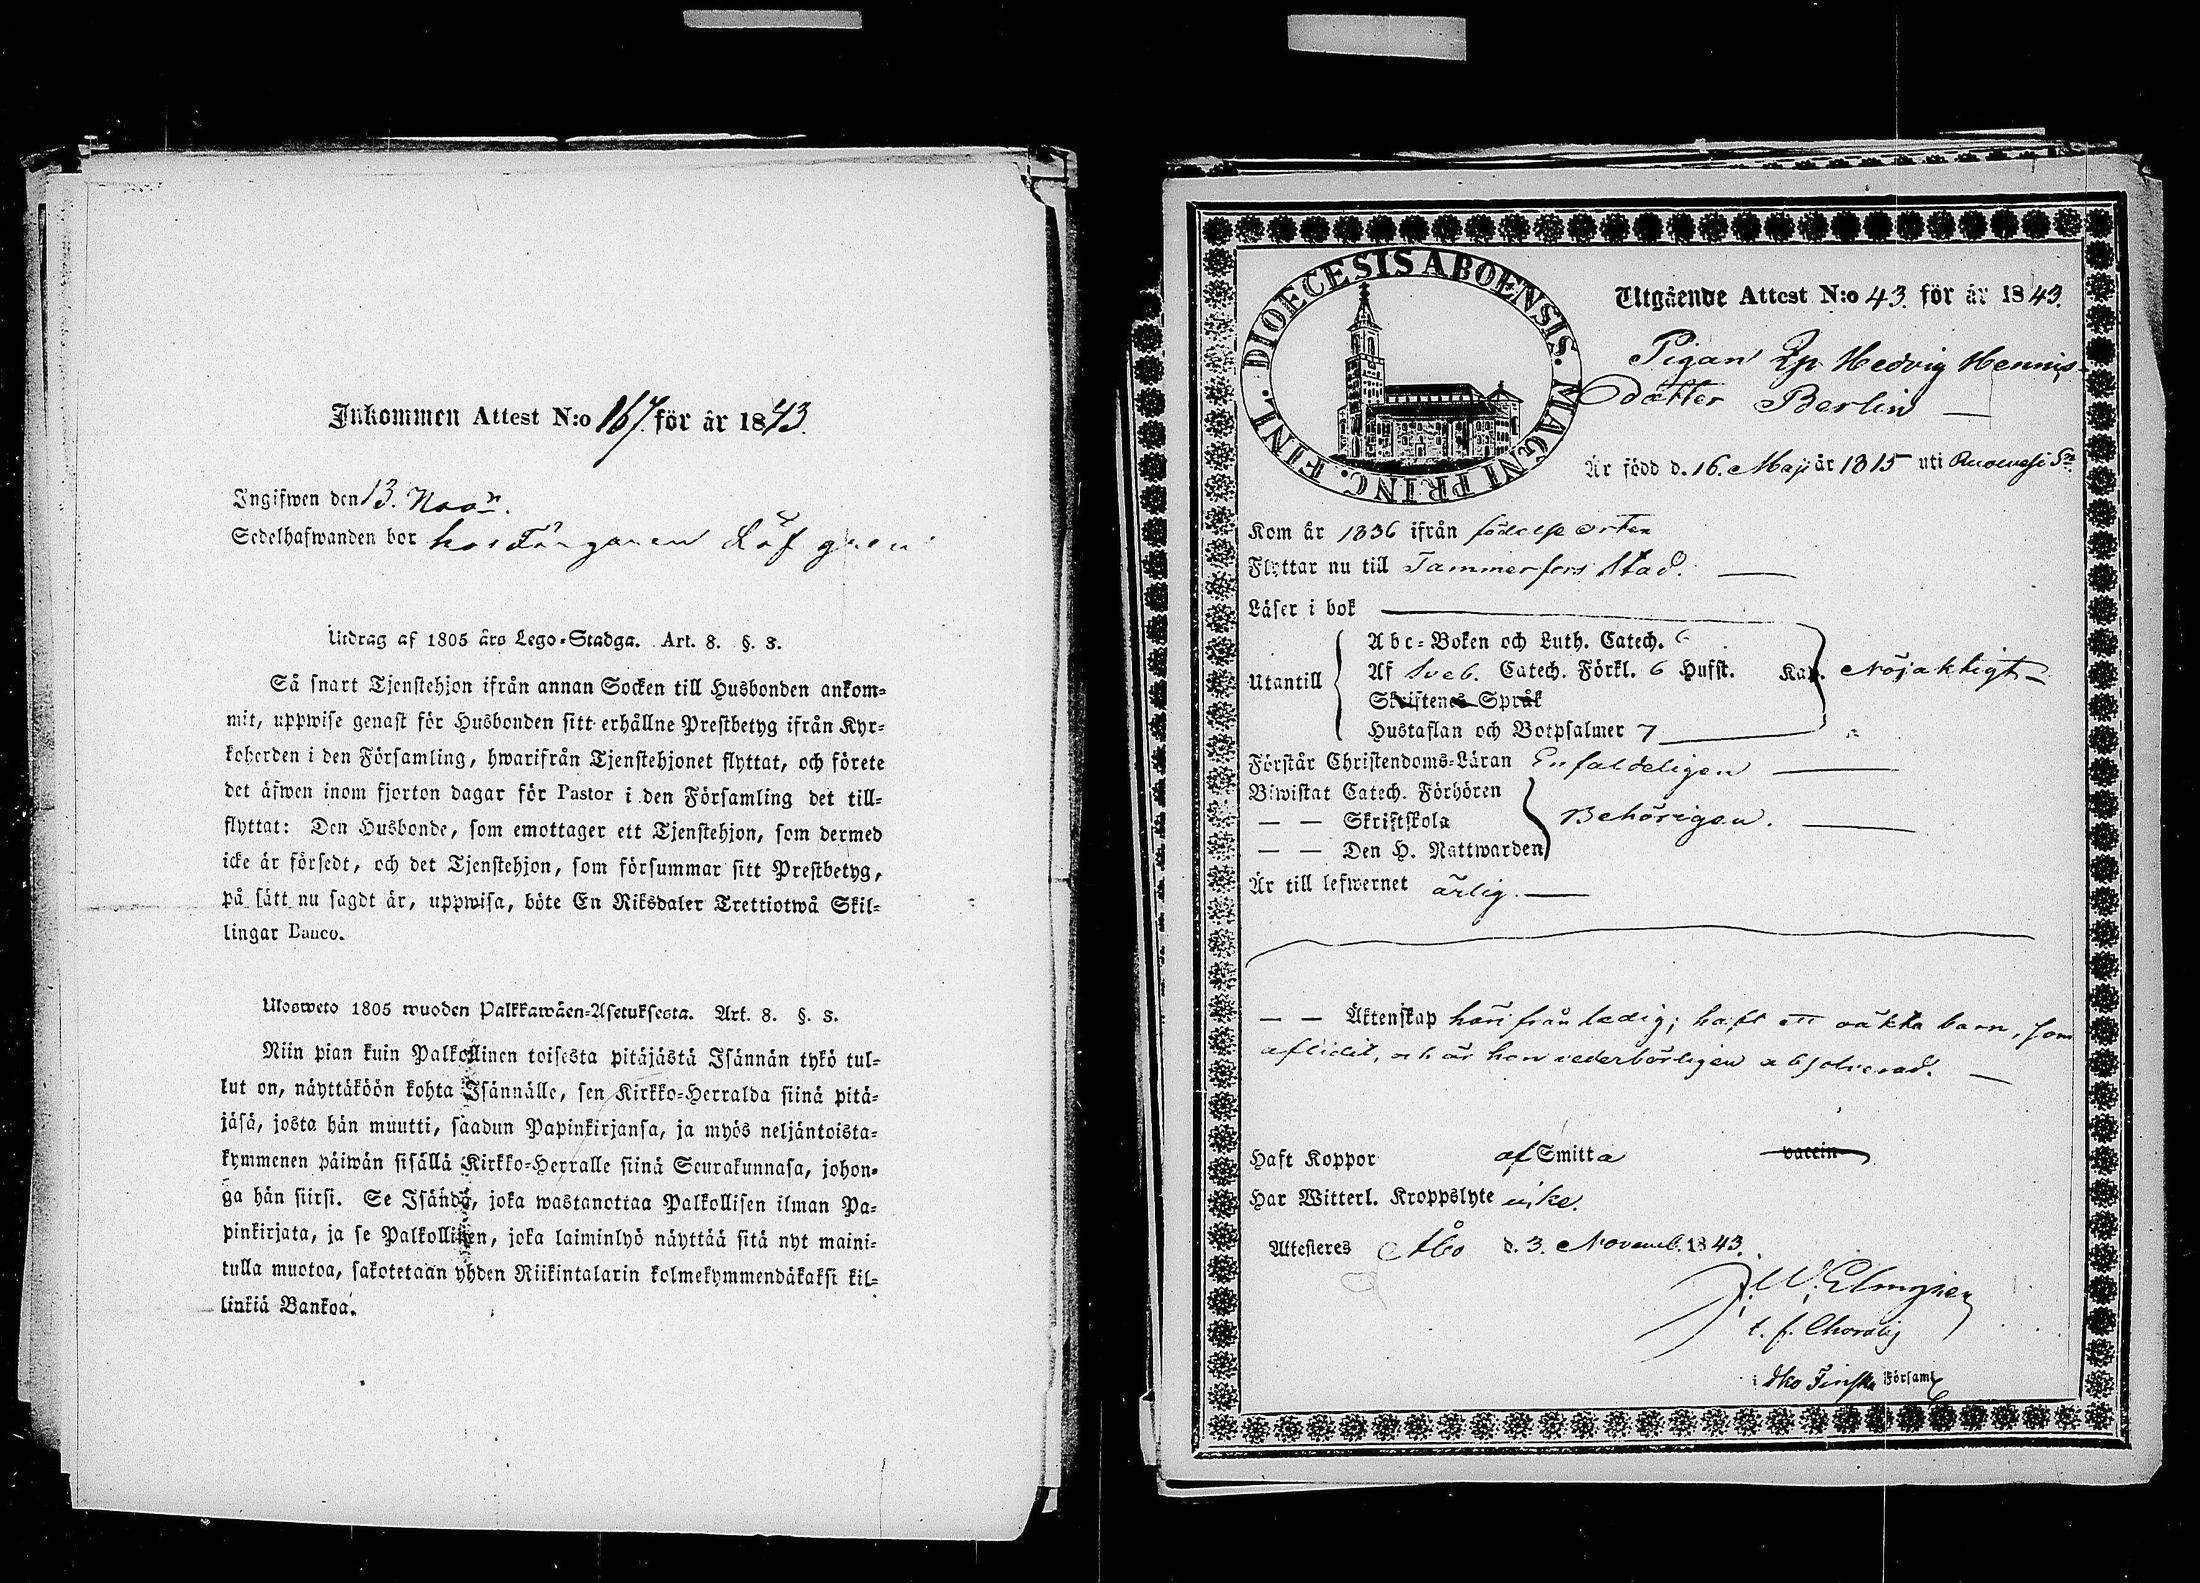 Inkommen Attest N:o 167. för år 1843.
Ingifwen den 13. Nov:r.
Sedelhafwanden bor hos Färgaren Löfgren
Utdrag af 1805 års Lego-Stadga. Art. 8. §. 8.
Så snart Tjenstehjon ifrån annan Socken till Husbonden ankom-
mit, uppwise genast för Husbonden sitt erhållne Prestbetyg ifrån Kyr-
koherden i den Församling, hwarifrån Tjenstehjonet flyttat, och förete
det äfwen inom fjorton dagar för Pastor i den Församling det till-
flyttat: Den Husbonde, som emottager ett Tjenstehjon, som dermed
icke är försedt, och det Tjenstehjon, som försummar sitt Prestbetyg,
på sätt nu sagdt är, uppwisa, böte En Riksdaler Trettiotwå Skil-
lingar Banco.
Ulosweto 1805 wuoden Palkkawäen-Asetuksesta. Art. 8. §. 8.
Niin pian kuin Palkollinen toisesta pitäjästä Isännän tykö tul-
lut on, näyttäköön kohta Isännälle, sen Kirkko-Herralda siinä pitä-
jäsä, josta hän muutti, saadun Papinkirjansa, ja myös neljäntoista-
kymmenen päiwän sisällä Kirkko-Herralle siinä Seurakunnasa, johon-
ga hän siirsi. Se Isändä, joka wastanottaa Palkollisen ilman Pa-
pinkirjata, ja se Palkollinen, joka laiminlyö näyttää sitä nyt maini-
tulla muotoa, sakotetaan yhden Riikintalarin kolmekymmendäkaksi kil-
linkiä Bankoa.
DIOECESIS ABOENSIS. MAGNI PRINC. FINL.
Utgående Attest N:o 43. för år 1843.
Pigan Hedvig Hennis-
dotter Berlin
Är född d. 16. Maji år 1815 uti
Kom år 1836 ifrån födelse orten
Flyttar nu till Tammerfors Stad.
Läser i bok
Utantill
Abc-Boken och Luth. Catech. 6
Af Sveb. Catech. Förkl. 6 Hufst. Kap. Nöjaktigt
Skriftenes Språk
Hustaflan och Botpsalmer 7
Förstår Christendoms-Läran Enfaldeligen
Biwistat Catech. Förhören
— — Skriftskola Behörigen.
— — Den H. Nattwarden
Är till lefwernet ärlig.
— — Äktenskap härifrån ledig; haft ett oäkta barn, som
aflidit, och är hon vederbörligen absolverad.
Haft Koppor af Smitta vaccin
Har Witterl. Kroppslyte icke.
Attesteres Åbo d. 3. Novemb. 1843.
t. f.
i Åbo Finska Församl